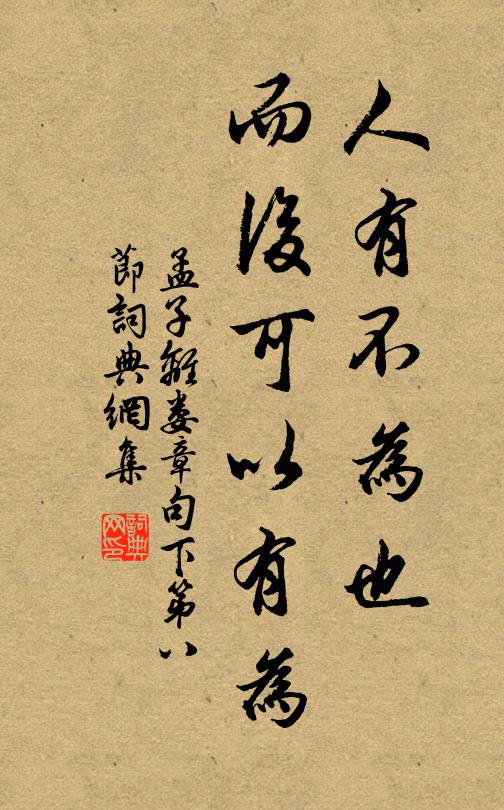 人有不為也
而後可以有為
孟子離娄章句下第八
節詞典網集
詞典
网印